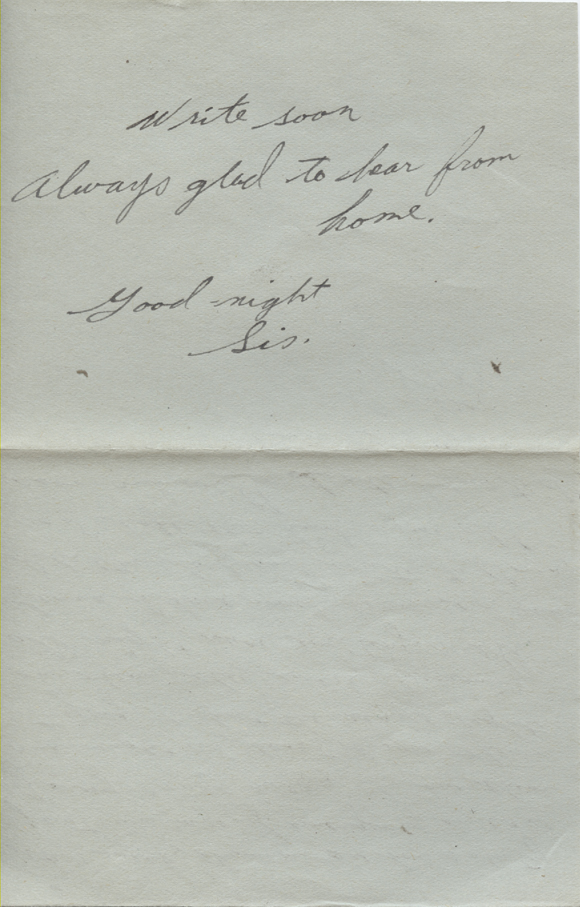 Write soon
Always glad to hear from
home.
Good night
Sis.